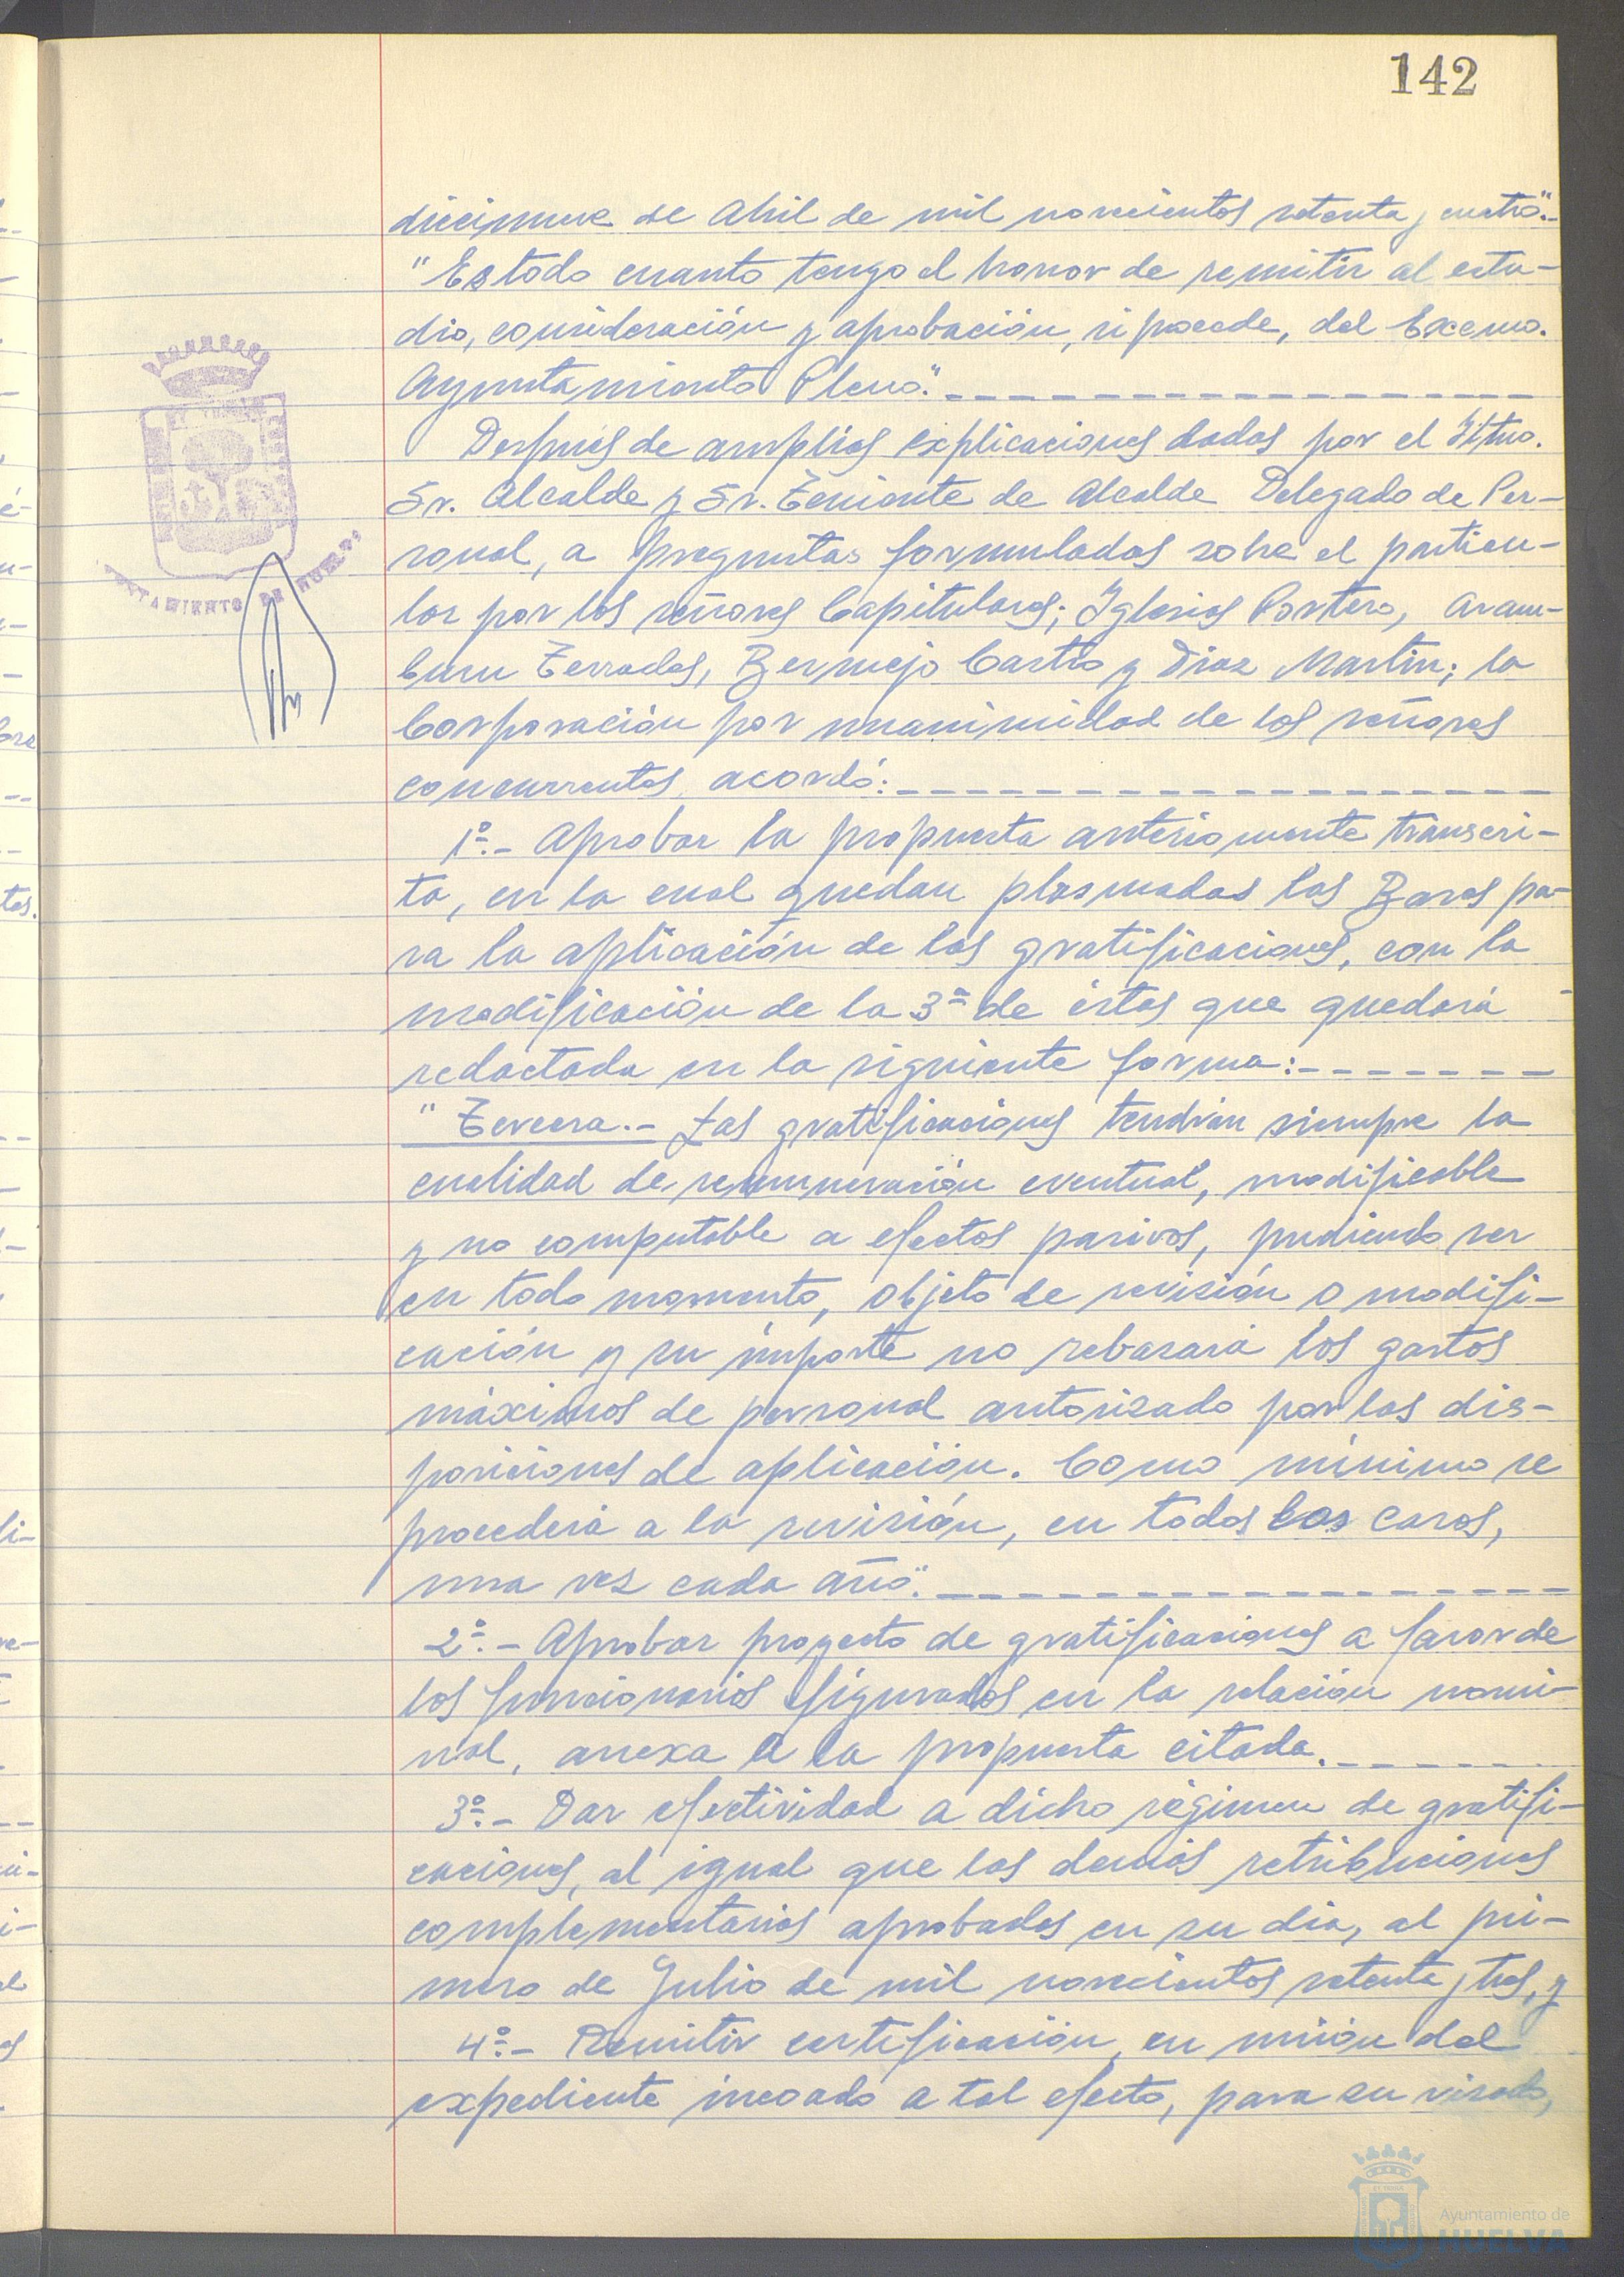 142
diecinueve de Abril de mil novecientos setenta y cuatro".-
"Es todo cuanto tengo el honor de remitir al estu-
dio, consideración y aprobación, si procede, del Excmo.
Ayuntamiento Pleno".- - - - - - - - - - - - - - - - -
Después de amplias explicaciones dadas por el Iltmo.
Sr. Alcalde y Sr. Teniente de Alcalde Delegado de Per-
sonal, a preguntas formuladas sobre el particu-
lar por los señores Capitulares; Iglesias Portero, Aram-
buru Terrades, Bermejo Castro y Diaz Martin; la
Corporación por unanimidad de los señores
concurrentes, acordó:- - - - - - - - - - - - - - - - - -
1º.- Aprobar la propuesta anteriomente transcri-
ta, en la cual quedan plasmadas las Bases pa-
ra la aplicación de las gratificaciones, con la
modificación de la 3ª de éstas que quedará
redactada en la siguiente forma:- - - - - - -
"Tercera.- Las gratificaciones tendrán siempre la
cualidad de remuneración eventual, modificable
y no computable a efectos pasivos, pudiendo ser
en todo momento, objeto de revisión o modifi-
cación y su importe no rebasará los gastos
máximos de personal autorizado por las dis-
posiciones de aplicación. Como mínimo se
procederá a la revisión, en todos los casos,
una vez cada año".- - - - - - - - - - - - - - - - -
2º.- Aprobar proyecto de gratificaciones a favor de
los funcionarios figurados en la relación nomi-
nal, anexa a la propuesta citada.- - - - - -
3º.- Dar efectividad a dicho régimen de gratifi-
caciones, al igual que las demás retribuciones
complementarias aprobadas en su dia, al pri-
mero de Julio de mil novecientos setenta y tres, y
4º.- Remitir certificación, en unión del
expediente incoado a tal efecto, para su visado,
AYUNTAMIENTO DE HUELVA
Ayuntamiento de
HUELVA